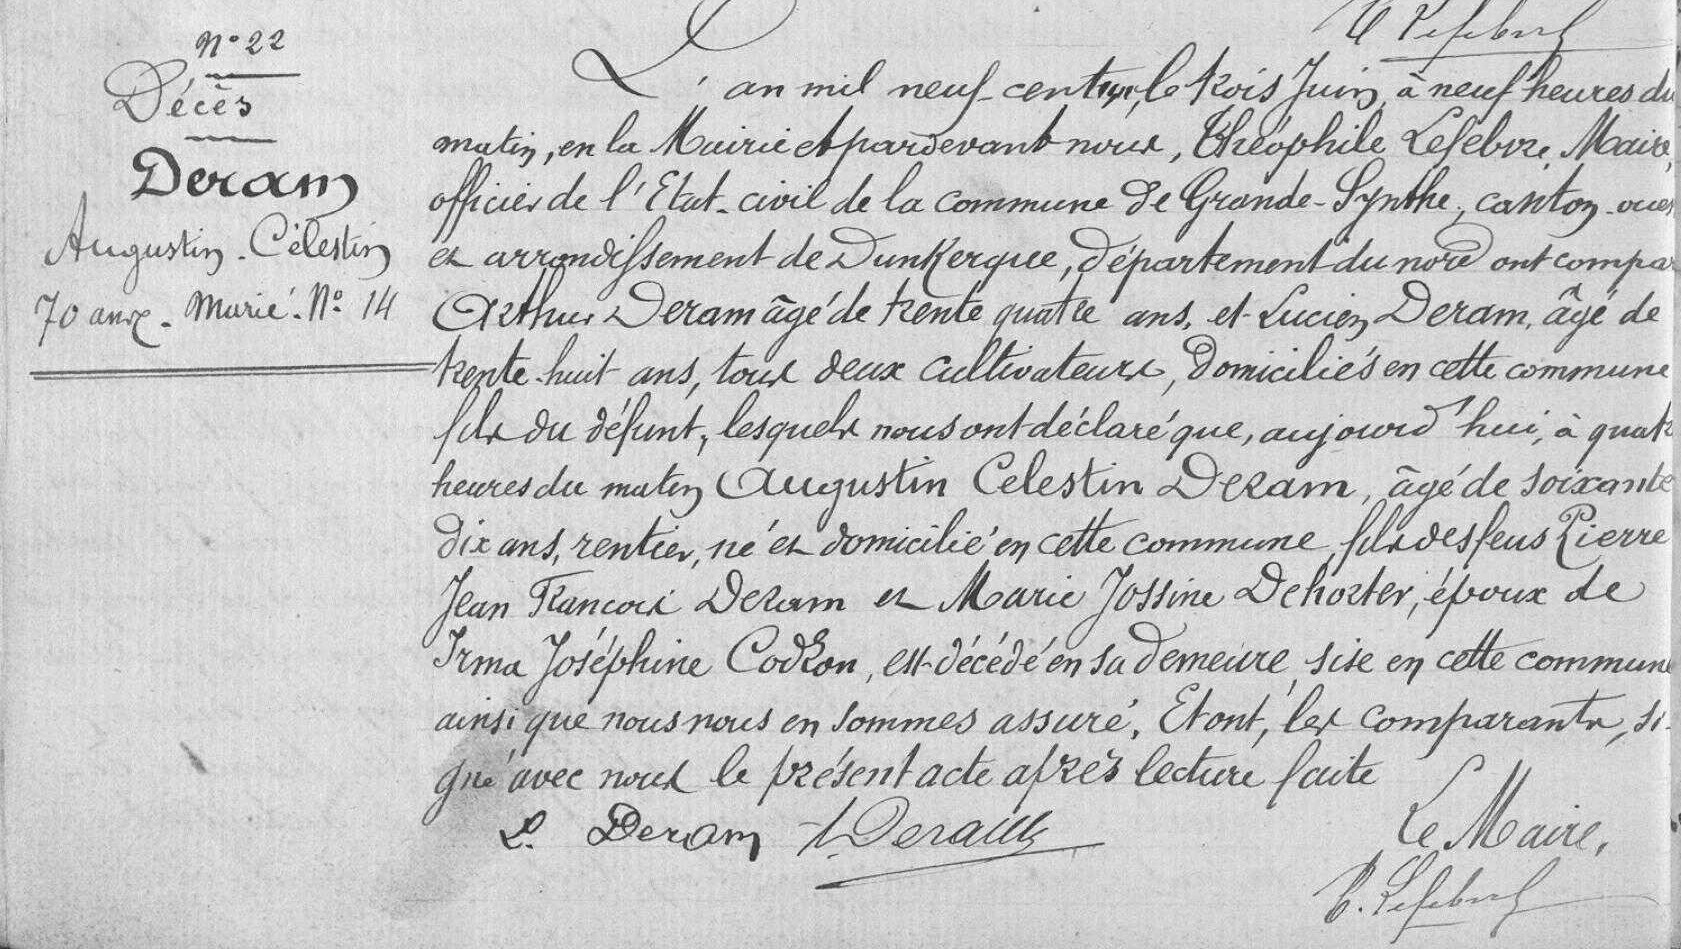 T. Lefebvre
N° 22
Décès
Deram
Augustin - Célestin
70 ans - Marié - N° 14
L'an mil neuf - cent le trois Juin, à neuf heures du
matin, en la Mairie et pardevant nous, Théophile Lefebvre, Maire,
officier de l'Etat - civil de la commune de Grande - Synthe, canton - ouest
et arrondissement de Dunkerque, département du nord ont compar
Arthur Deram âgé de trente quatre ans, et Lucien Deram, âgé de
trente - huit ans, tous deux cultivateurs, domiciliés en cette commune
fils du défunt, lesquels nous ont déclaré que, aujourd'hui, à quatre
heures du matin Augustin Celestin Deram, âgé de soixante
dix ans, rentier, né et domicilié en cette commune, fils des feus Pierre
Jean Francois Deram et Marie Jossine Dehorter, époux de
Irma Joséphine Codron, est décédé en sa demeure, sise en cette commune
ainsi que nous nous en sommes assuré. Et ont, les comparants, si-
gné avec nous le présent acte après lecture faite
L. Deram A. Deram Le Maire,
T. Lefebvre